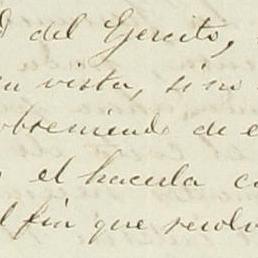 d del Ejercito,
su vista, sino
obteniendo de e
el hacerla co
l fin que resolv